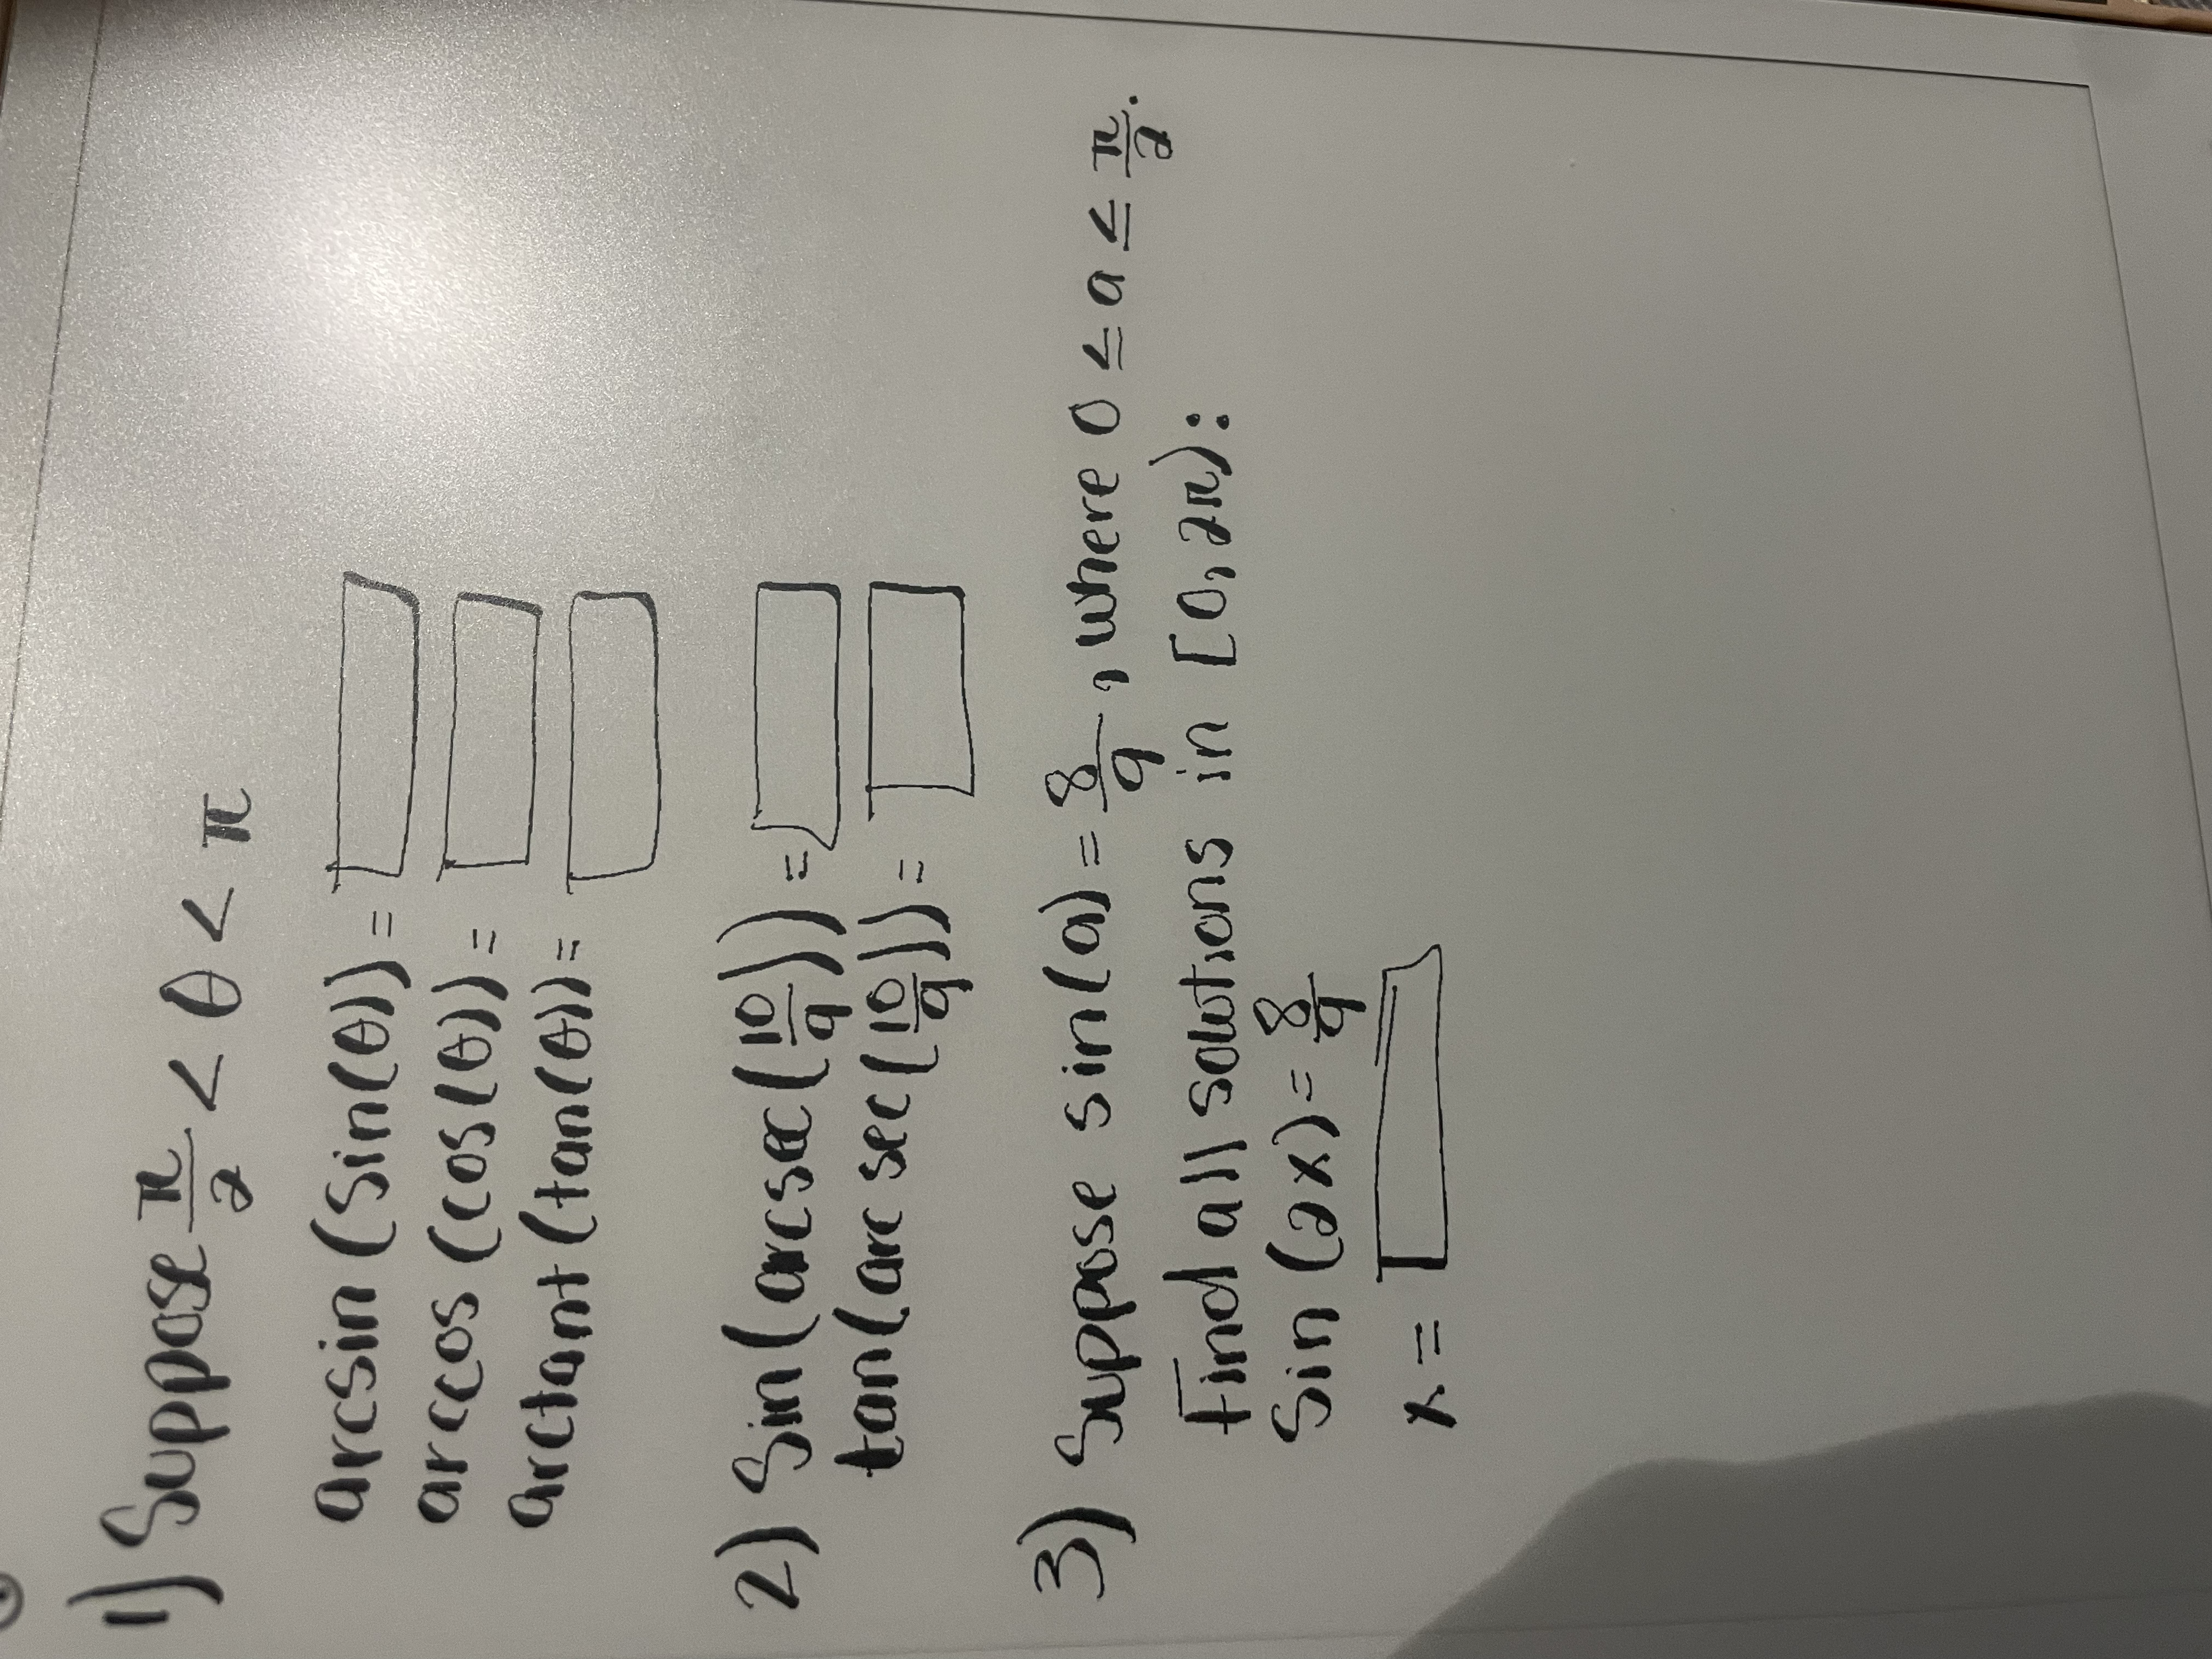 1) Suppose π/2 < θ < π
arcsin (sin(θ)) =
arccos (cos(θ)) =
arctant (tan(θ)) =
2) Sin(arcsec(10/9)) =
tan(arc sec(10/9)) =
3) Suppose sin(a) = 8/9, where 0 ≤ a ≤ π/2.
Find all solutions in [0, 2π):
Sin (2x) = 8/9
x =